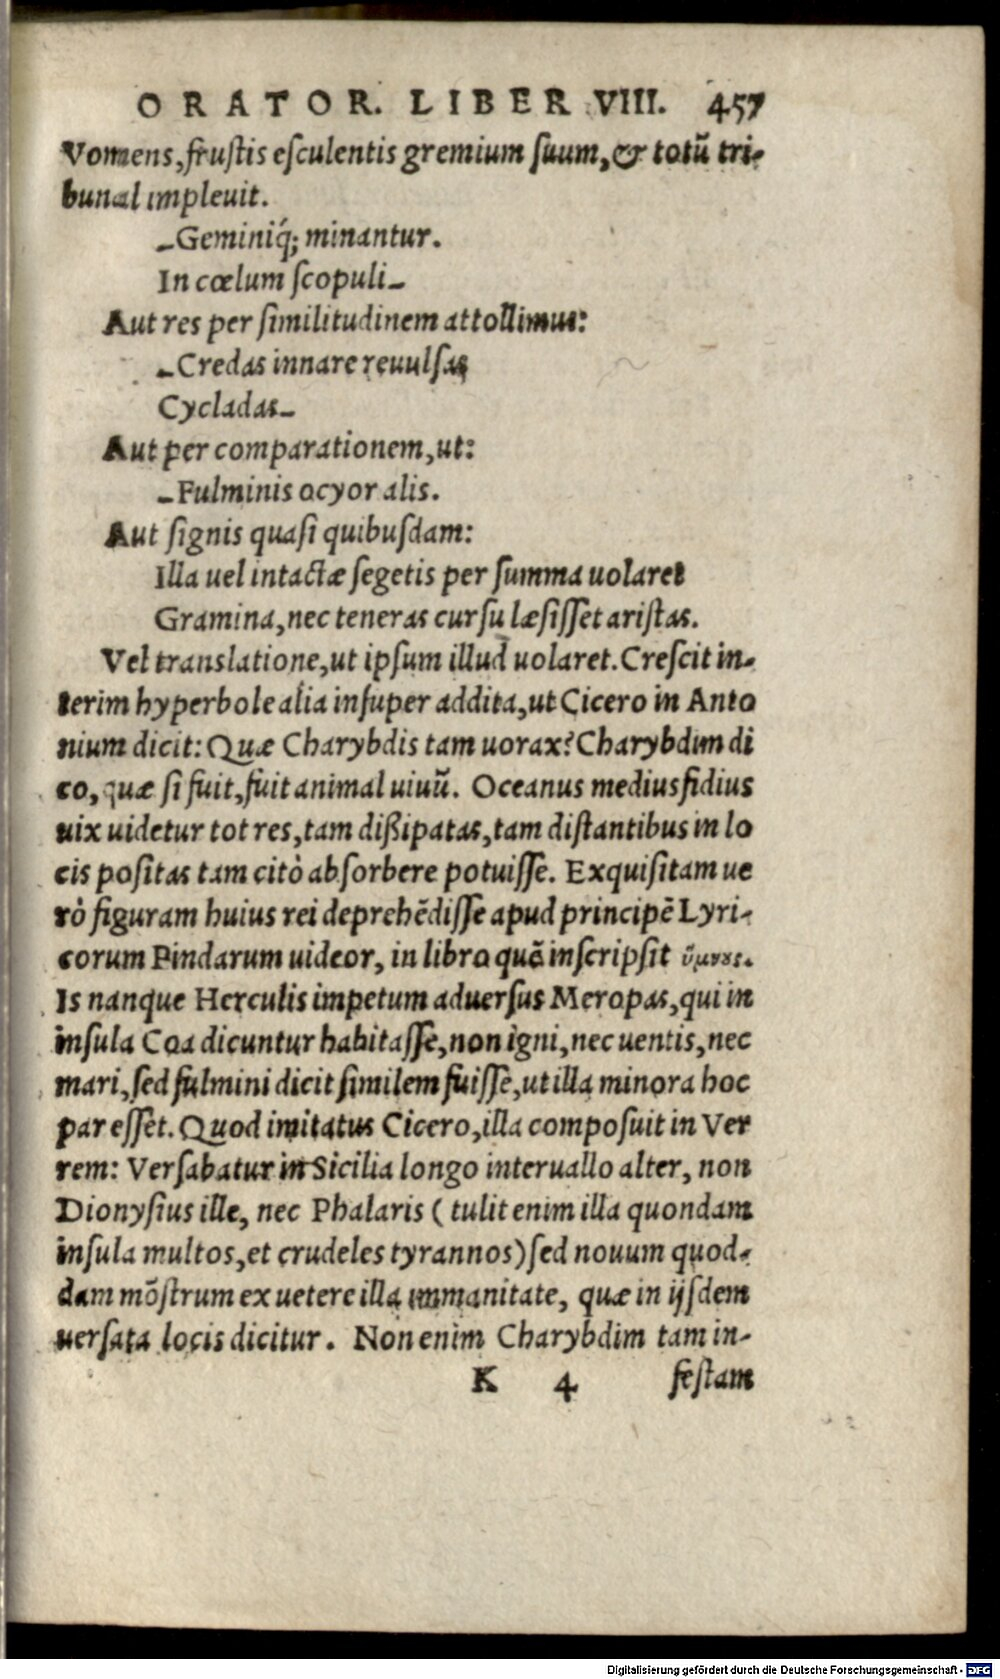 ORATOR. LIBER VIII. 457
Vomens, frustis esculentis gremium suum, & totū tri-
bunal impleuit.
-Geminiq́; minantur.
In cœlum scopuli-
Aut res per similitudinem attollimus:
-Credas innare reuulsas
Cycladas-
Aut per comparationem, ut:
-Fulminis ocyor alis.
Aut signis quasi quibusdam:
Illa uel intactæ segetis per summa uolaret
Gramina, nec teneras cursu læsisset aristas.
Vel translatione, ut ipsum illud uolaret. Crescit in-
terim hyperbole alia insuper addita, ut Cicero in Anto
nium dicit: Quæ Charybdis tam uorax? Charybdim di
co, quæ si fuit, fuit animal uiuū. Oceanus mediusfidius
uix uidetur tot res, tam dißipatas, tam distantibus in lo
cis positas tam citò absorbere potuisse. Exquisitam ue
rò figuram huius rei deprehēdisse apud principē Lyri-
corum Pindarum uideor, in libro quē inscripsit ὕμνους.
Is nanque Herculis impetum aduersus Meropas, qui in
insula Coa dicuntur habitasse, non igni, nec uentis, nec
mari, sed fulmini dicit similem fuisse, ut illa minora hoc
par esset. Quod imitatus Cicero, illa composuit in Ver
rem: Versabatur in Sicilia longo interuallo alter, non
Dionysius ille, nec Phalaris ( tulit enim illa quondam
insula multos, et crudeles tyrannos) sed nouum quod-
dam mōstrum ex uetere illa immanitate, quæ in ijsdem
uersata locis dicitur. Non enim Charybdim tam in-
K 4 festam
Digitalisierung gefördert durch die Deutsche Forschungsgemeinschaft - DFG